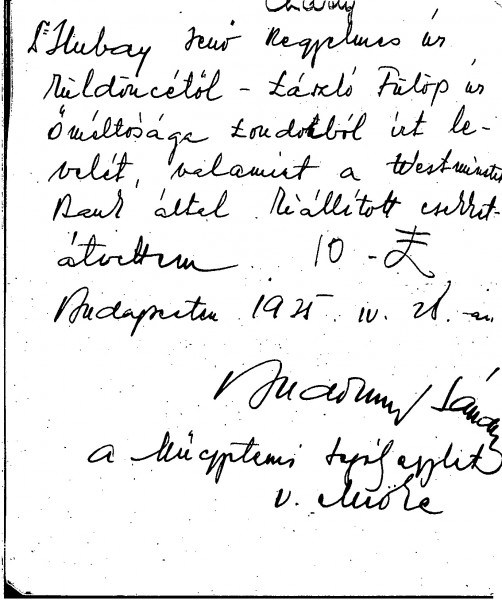 Dr Hubay Jenő Kegyelmes úr
küldöncétől - László Fülöp úr
Őméltósága Londonból írt le-
velét, valamint a Westminster
Bank által kiállított csekket
átvettem 10 - £
Budapesten 1925. IV. 28.-án
Sándor
a Műegyetemi
v.